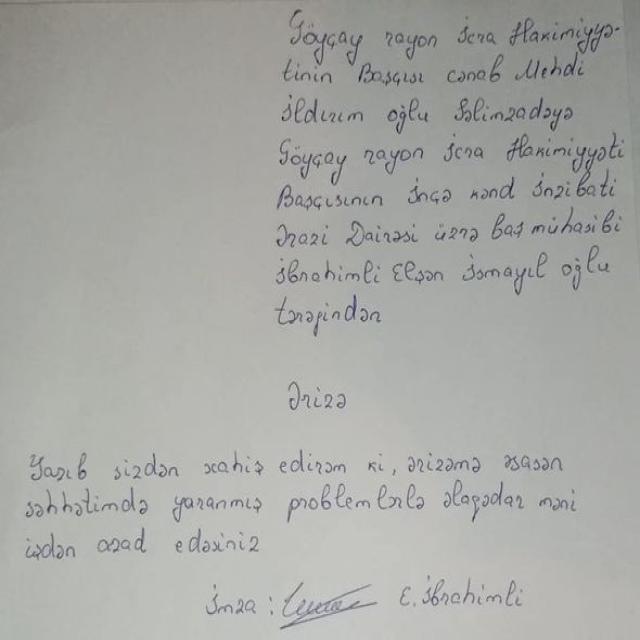 Göyçay rayon İcra Hakimiyyə-
tinin Başçısı cənab Mehdi
İldırım oğlu Səlimzadəyə
Göyçay rayon İcra Hakimiyyəti
Başçısının İnçə kənd İnzibati
Ərazi Dairəsi üzrə baş mühasibi
İbrahimli Elşən İsmayıl oğlu
tərəfindən
Ərizə
Yazıb sizdən xahiş edirəm ki, ərizəmə əsasən
səhhətimdə yaranmış problemlərlə əlaqədar məni
işdən azad edəsiniz
İmza: E. İbrahimli